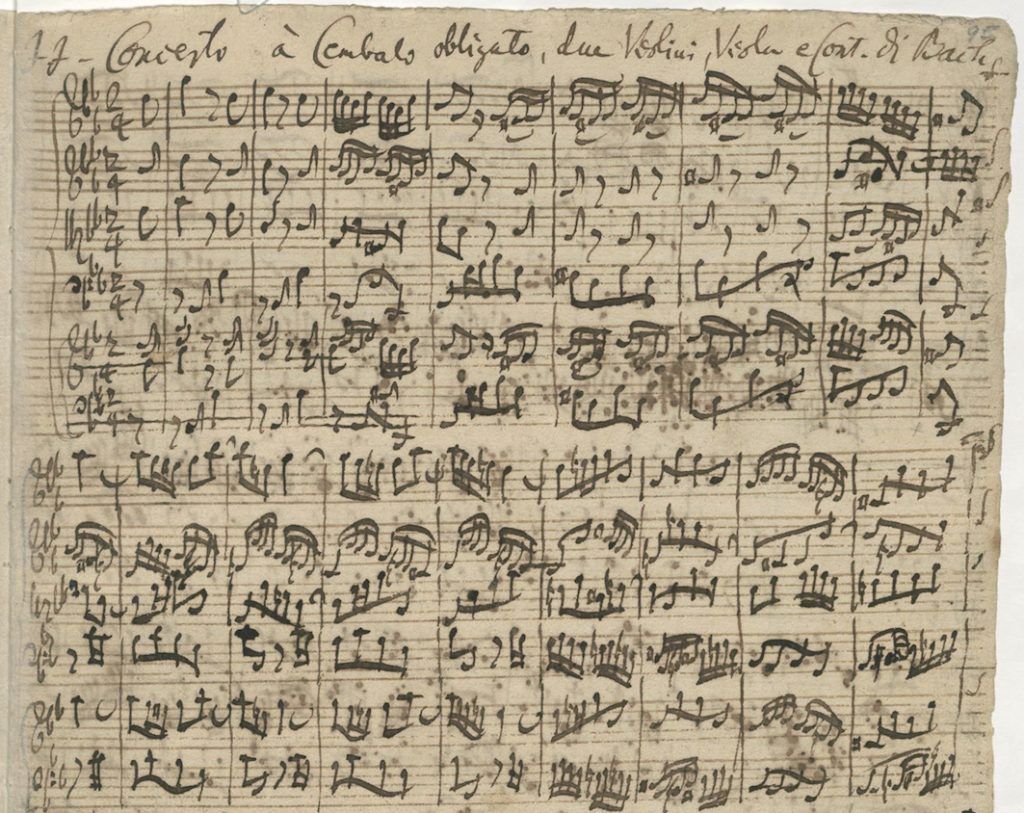 J. J. Concerto à Cembalo obligato, due Violini, Viola e Cont. di Bach
2/4
2/4
2/4
2/4
2/4
2/4